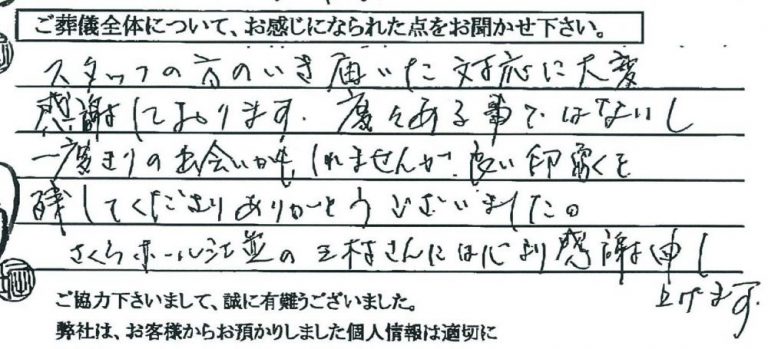 ご葬儀全体について、お感じになられた点をお聞かせ下さい。
スタッフの方のいき届いた対応に大変
感謝しております。度々ある事ではないし
一度きりの出会いかもしれませんが、良い印象を
残してくださりありがとうございました。
さくらホール の玉村さんには心より感謝申し
上げます。
ご協力下さいまして、誠に有難うございました。
弊社は、お客様からお預かりしました個人情報は適切に